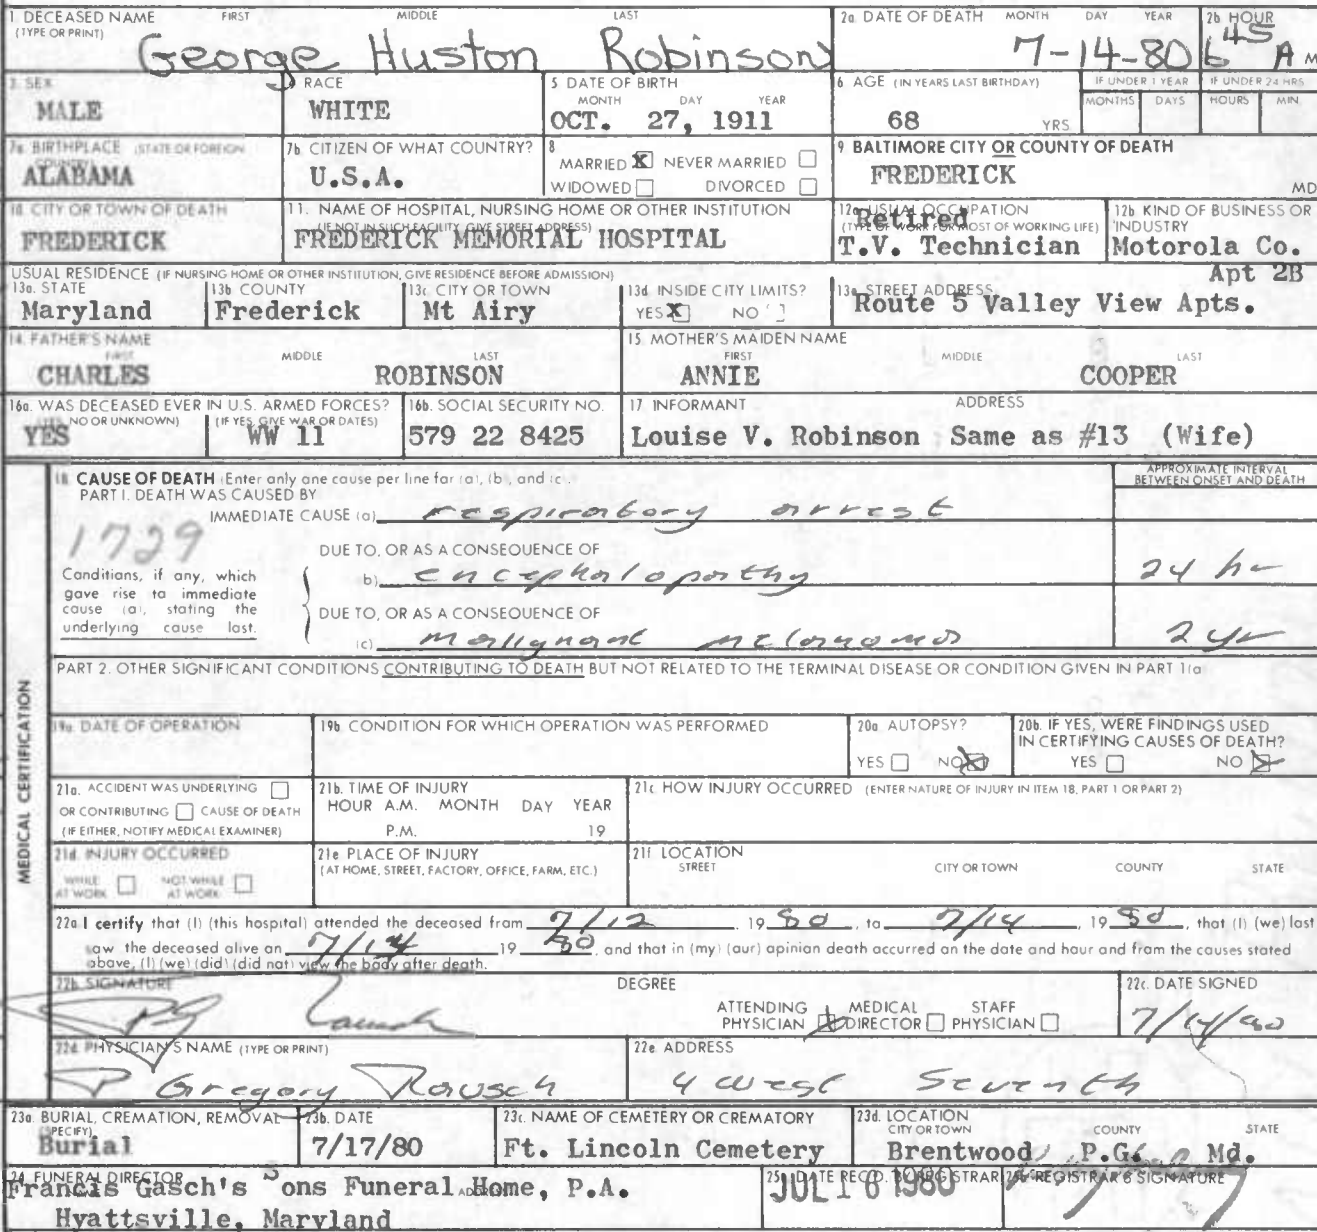 1 DECEASED NAME (TYPE OR PRINT) FIRST MIDDLE LAST
George Huston Robinson
2a. DATE OF DEATH MONTH DAY YEAR
7-14-80
2b HOUR
6 45 A M
3. SEX
MALE
RACE
WHITE
5 DATE OF BIRTH
MONTH DAY YEAR
OCT. 27, 1911
6 AGE (IN YEARS LAST BIRTHDAY)
68 YRS
IF UNDER 1 YEAR
MONTHS DAYS
IF UNDER 24 HRS
HOURS MIN
7a. BIRTHPLACE (STATE OR FOREIGN COUNTRY)
ALABAMA
7b. CITIZEN OF WHAT COUNTRY?
U.S.A.
8
MARRIED X NEVER MARRIED
WIDOWED DIVORCED
9 BALTIMORE CITY OR COUNTY OF DEATH
FREDERICK
MD
10. CITY OR TOWN OF DEATH
FREDERICK
11. NAME OF HOSPITAL, NURSING HOME OR OTHER INSTITUTION
(IF NOT IN SUCH FACILITY, GIVE STREET ADDRESS)
FREDERICK MEMORIAL HOSPITAL
12a USUAL OCCUPATION
(TYPE OF WORK FOR MOST OF WORKING LIFE)
Retired
T.V. Technician
12b KIND OF BUSINESS OR INDUSTRY
Motorola Co.
USUAL RESIDENCE (IF NURSING HOME OR OTHER INSTITUTION, GIVE RESIDENCE BEFORE ADMISSION)
13a. STATE
Maryland
13b COUNTY
Frederick
13c CITY OR TOWN
Mt Airy
13d INSIDE CITY LIMITS?
YES X NO
13e STREET ADDRESS
Apt 2B
Route 5 Valley View Apts.
14. FATHER'S NAME
FIRST MIDDLE LAST
CHARLES ROBINSON
15 MOTHER'S MAIDEN NAME
FIRST MIDDLE LAST
ANNIE COOPER
16a. WAS DECEASED EVER IN U.S. ARMED FORCES?
NO OR UNKNOWN) (IF YES, GIVE WAR OR DATES)
YES WW 11
16b. SOCIAL SECURITY NO.
579 22 8425
17 INFORMANT ADDRESS
Louise V. Robinson Same as #13 (Wife)
MEDICAL CERTIFICATION
18 CAUSE OF DEATH (Enter only one cause per line for (a), (b), and (c).
APPROXIMATE INTERVAL BETWEEN ONSET AND DEATH
PART I. DEATH WAS CAUSED BY
IMMEDIATE CAUSE (a) respiratory arrest
1729
DUE TO, OR AS A CONSEQUENCE OF
b) encephalopathy 24 hr
Conditions, if any, which
gave rise to immediate
cause (a), stating the
underlying cause last.
DUE TO, OR AS A CONSEQUENCE OF
(c) malignant melanoma 2 yr
PART 2. OTHER SIGNIFICANT CONDITIONS CONTRIBUTING TO DEATH BUT NOT RELATED TO THE TERMINAL DISEASE OR CONDITION GIVEN IN PART 1(a)
19a. DATE OF OPERATION
19b CONDITION FOR WHICH OPERATION WAS PERFORMED
20a AUTOPSY?
YES NO X
20b. IF YES, WERE FINDINGS USED
IN CERTIFYING CAUSES OF DEATH?
YES NO X
21a. ACCIDENT WAS UNDERLYING
OR CONTRIBUTING CAUSE OF DEATH
(IF EITHER, NOTIFY MEDICAL EXAMINER)
21b. TIME OF INJURY
HOUR A.M. MONTH DAY YEAR
P.M. 19
21c HOW INJURY OCCURRED (ENTER NATURE OF INJURY IN ITEM 18, PART 1 OR PART 2)
21d. INJURY OCCURRED
WHILE AT WORK NOT WHILE AT WORK
21e PLACE OF INJURY
(AT HOME, STREET, FACTORY, OFFICE, FARM, ETC.)
21f LOCATION
STREET CITY OR TOWN COUNTY STATE
22a I certify that (I) (this hospital) attended the deceased from 7/12 19 80, to 7/14, 19 80, that (I) (we) last
saw the deceased alive on 7/14 19 80, and that in (my) (our) opinion death occurred on the date and hour and from the causes stated
above, (I) (we) (did) (did not) view the body after death.
22b SIGNATURE
DEGREE
ATTENDING PHYSICIAN X MEDICAL DIRECTOR STAFF PHYSICIAN
22c. DATE SIGNED
7/14/80
22d. PHYSICIAN'S NAME (TYPE OR PRINT)
P Gregory Rausch
22e ADDRESS
4 West Seventh
23a. BURIAL, CREMATION, REMOVAL (SPECIFY)
Burial
23b. DATE
7/17/80
23c. NAME OF CEMETERY OR CREMATORY
Ft. Lincoln Cemetery
23d. LOCATION
CITY OR TOWN COUNTY STATE
Brentwood P.G. Md.
24 FUNERAL DIRECTOR
Francis Gasch's Sons Funeral Home, P.A.
Hyattsville, Maryland
25a DATE REC'D. BY REGISTRAR
JUL 16 1980
25b REGISTRAR'S SIGNATURE